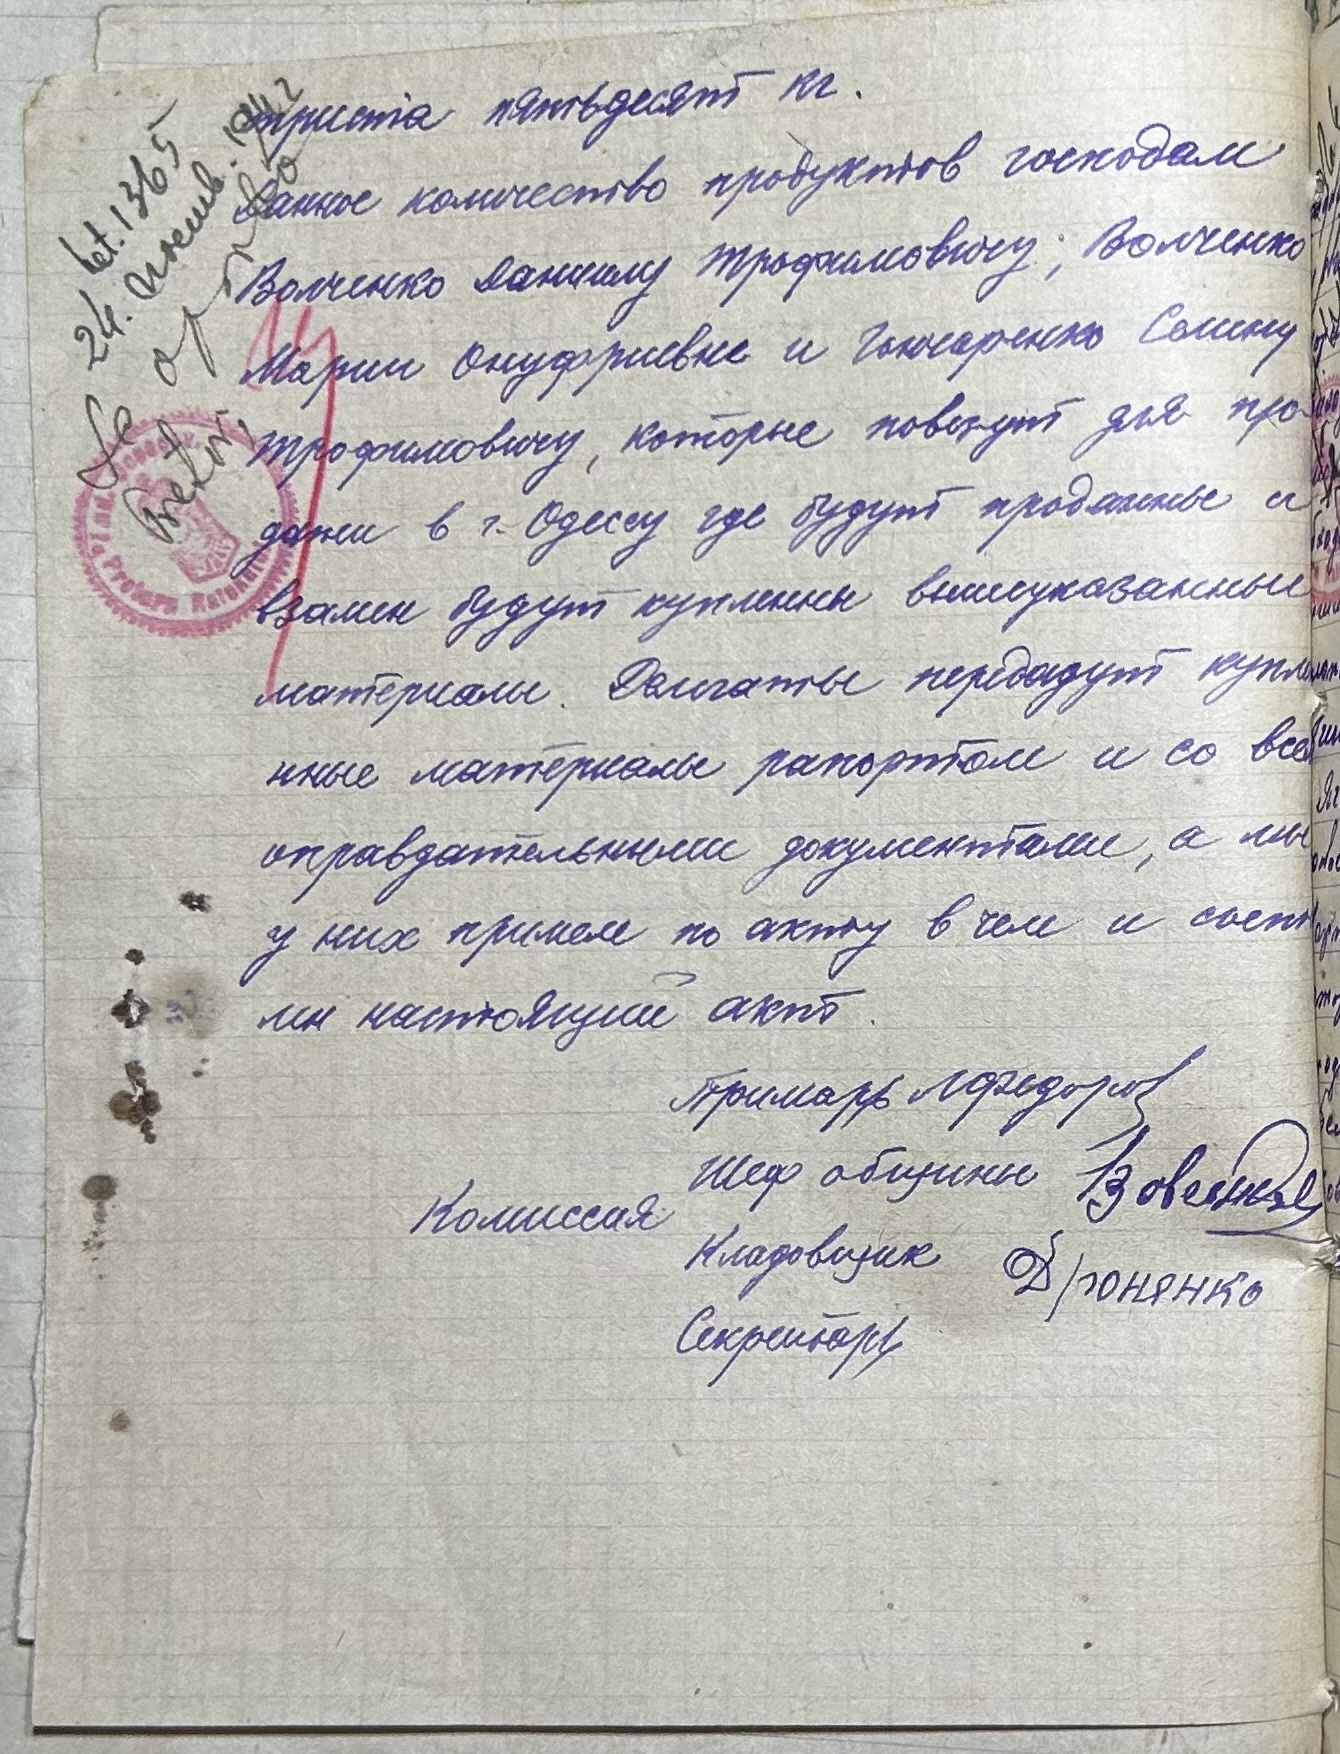 триста пятьдесят кг.
Данное количество продуктов господам
Волченко Даниилу Трофимовичу, Волченко
Марии Онуфриевне и Гончаренко Семену
Трофимовичу, которые повезут для про-
дажи в г. Одессу где будут проданные и
взамен будут купленны вышеуказанные
материалы. Делегаты передадут купле
нные материалы рапортом и со все
оправдательными документами, а мы
у них примем по акту в чем и соста
ли настоящий акт.
Примарь Федоров
Шеф общины
Комиссия
Кладовщик Дроненко
Секретарь
1365
24. 1942
Se aprobă
Pretor,